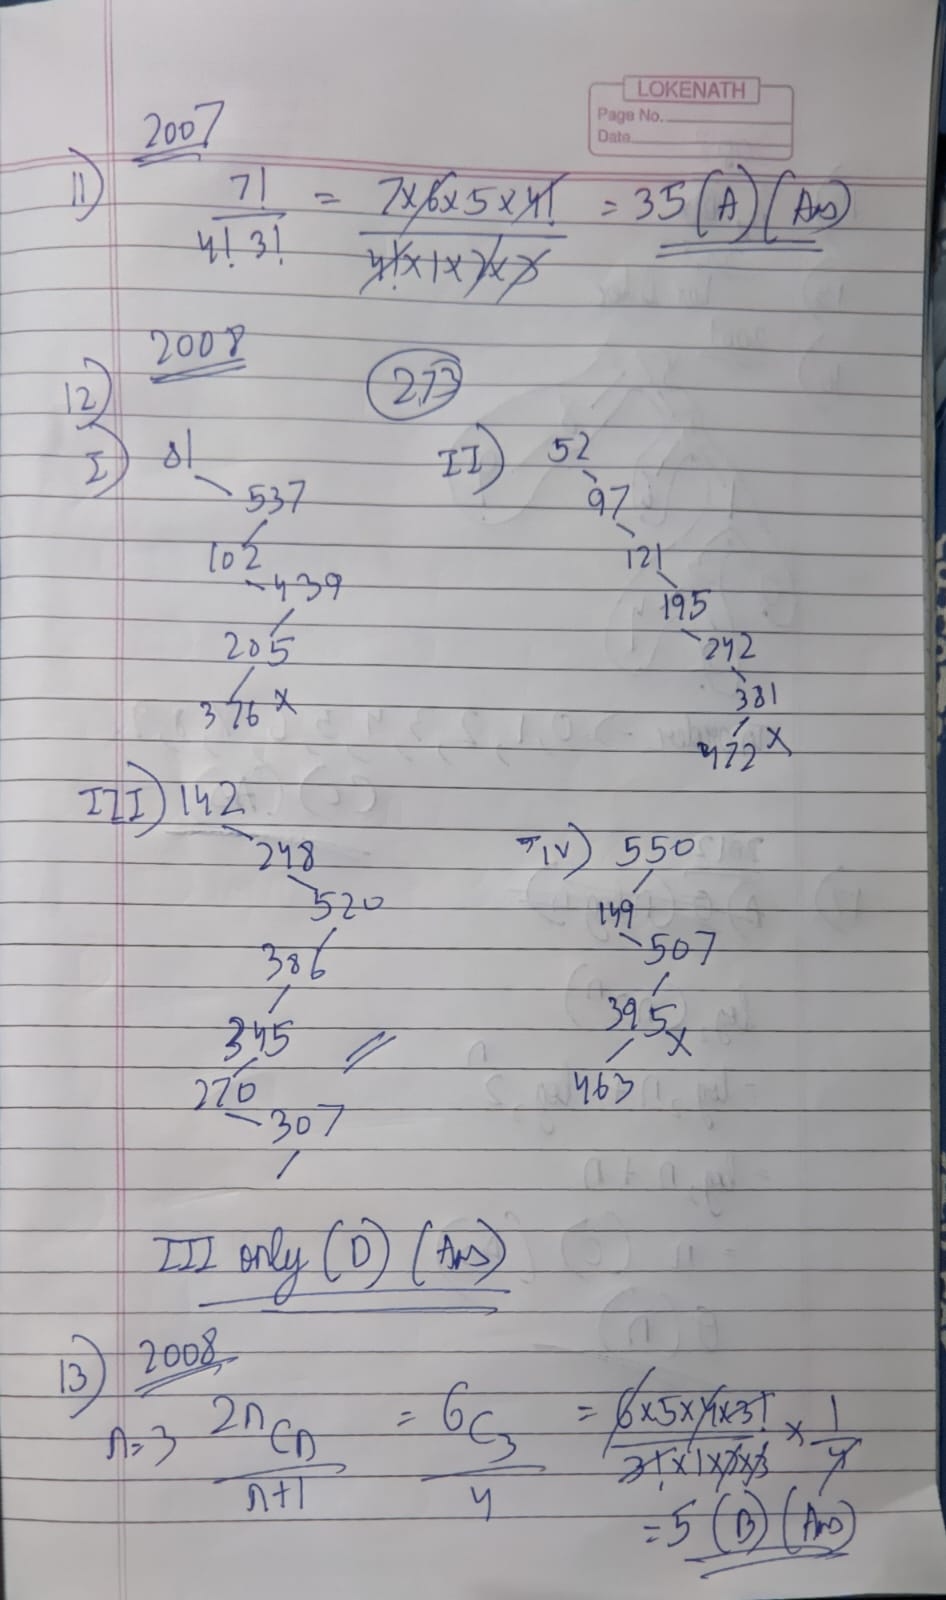 LOKENATH
Page No.
Date
2007
11) 7! / 4! 3! = 7x6x5x4! / 4!x1x2x3 = 35 (A) (Ans)
2008
12) 273
I) 81
537
102
439
205
376 x
II) 52
97
121
195
242
381
472 x
III) 142
248
520
386
345
270
307
IV) 550
149
507
395 x
463
III only (D) (Ans)
13) 2008
n=3 2nCn / n+1 = 6C3 / 4 = 6x5x4x3! / 3!x1x2x3 x 1/4
= 5 (B) (Ans)